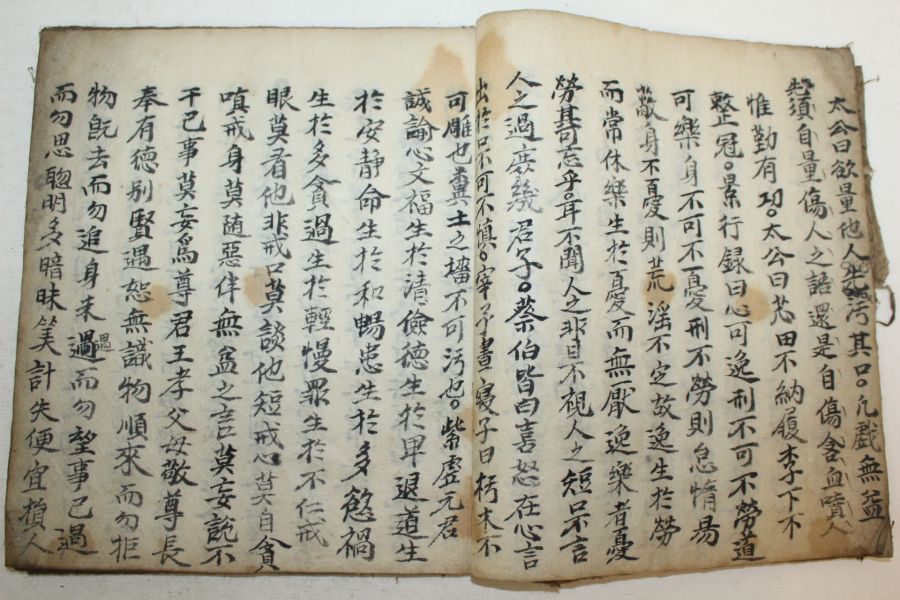 太公曰欲量他人先汚其口。凡戲無益
先須自量傷人之語還是自傷含血噴人
惟勤有功。太公曰苽田不納履李下不
整冠。景行録曰心可逸刑不可不勞道
可樂身不可不憂刑不勞則怠惰易
蔽身不憂則荒淫不定故逸生於勞
而常休樂生於憂而無厭逸樂者憂
勞其可忘乎。耳不聞人之非目不視人之短口不言
人之過庶幾君子。蔡伯皆曰喜怒在心言
出於口不可不慎。宰予晝寢子曰朽木不
可雕也糞土之墻不可汚也。紫虛元君
誠諭心文福生於清儉德生於卑退道生
於安静命生於和暢患生於多慾禍
生於多貪過生於輕慢罪生於不仁戒
眼莫看他非戒口莫談他短戒心莫自貪
嗔戒身莫随惡伴無益之言莫妄說不
干已事莫妄爲尊君王孝父母敬尊長
奉有德別賢遇恕無識物順來而勿拒
物既去而勿追身未過遇而勿望事已過
而勿思聦明多暗昧筭計失便宜損人